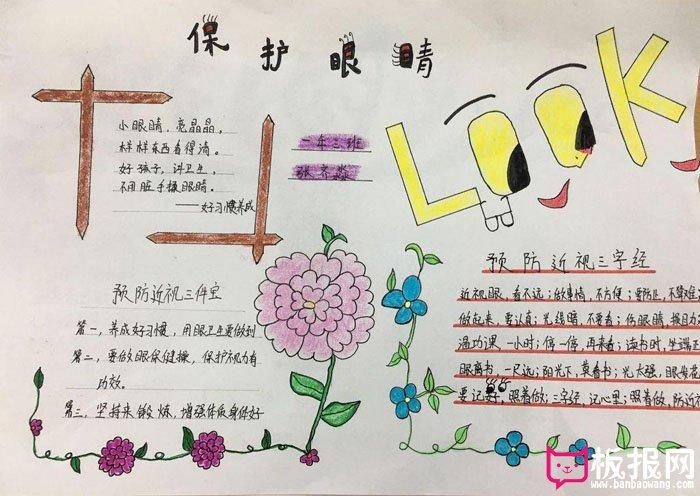 保护眼睛
小眼睛，亮晶晶，
样样东西看得清。
好孩子，讲卫生，
不用脏手揉眼睛。
——好习惯养成
年三班
LOOK
预防近视三件宝
第一，养成好习惯，用眼卫生要做到
第二，要做眼保健操，保护视力有
功效。
第三，坚持来锻炼，增强体质身体好
预防近视三字经
近视眼，看不远；做事情，不方便；要防近，不算难；
做起来，要认真；光线暗，不要看；伤眼睛，损目力；
温功课，一小时；停一停，再来看；读书时，坐端正
眼离书，一尺远；阳光下，莫看书；光太强，眼易花
要记好，照着做；三字经，记心里；照着做，防近视
板报网
www.banbaowang.com